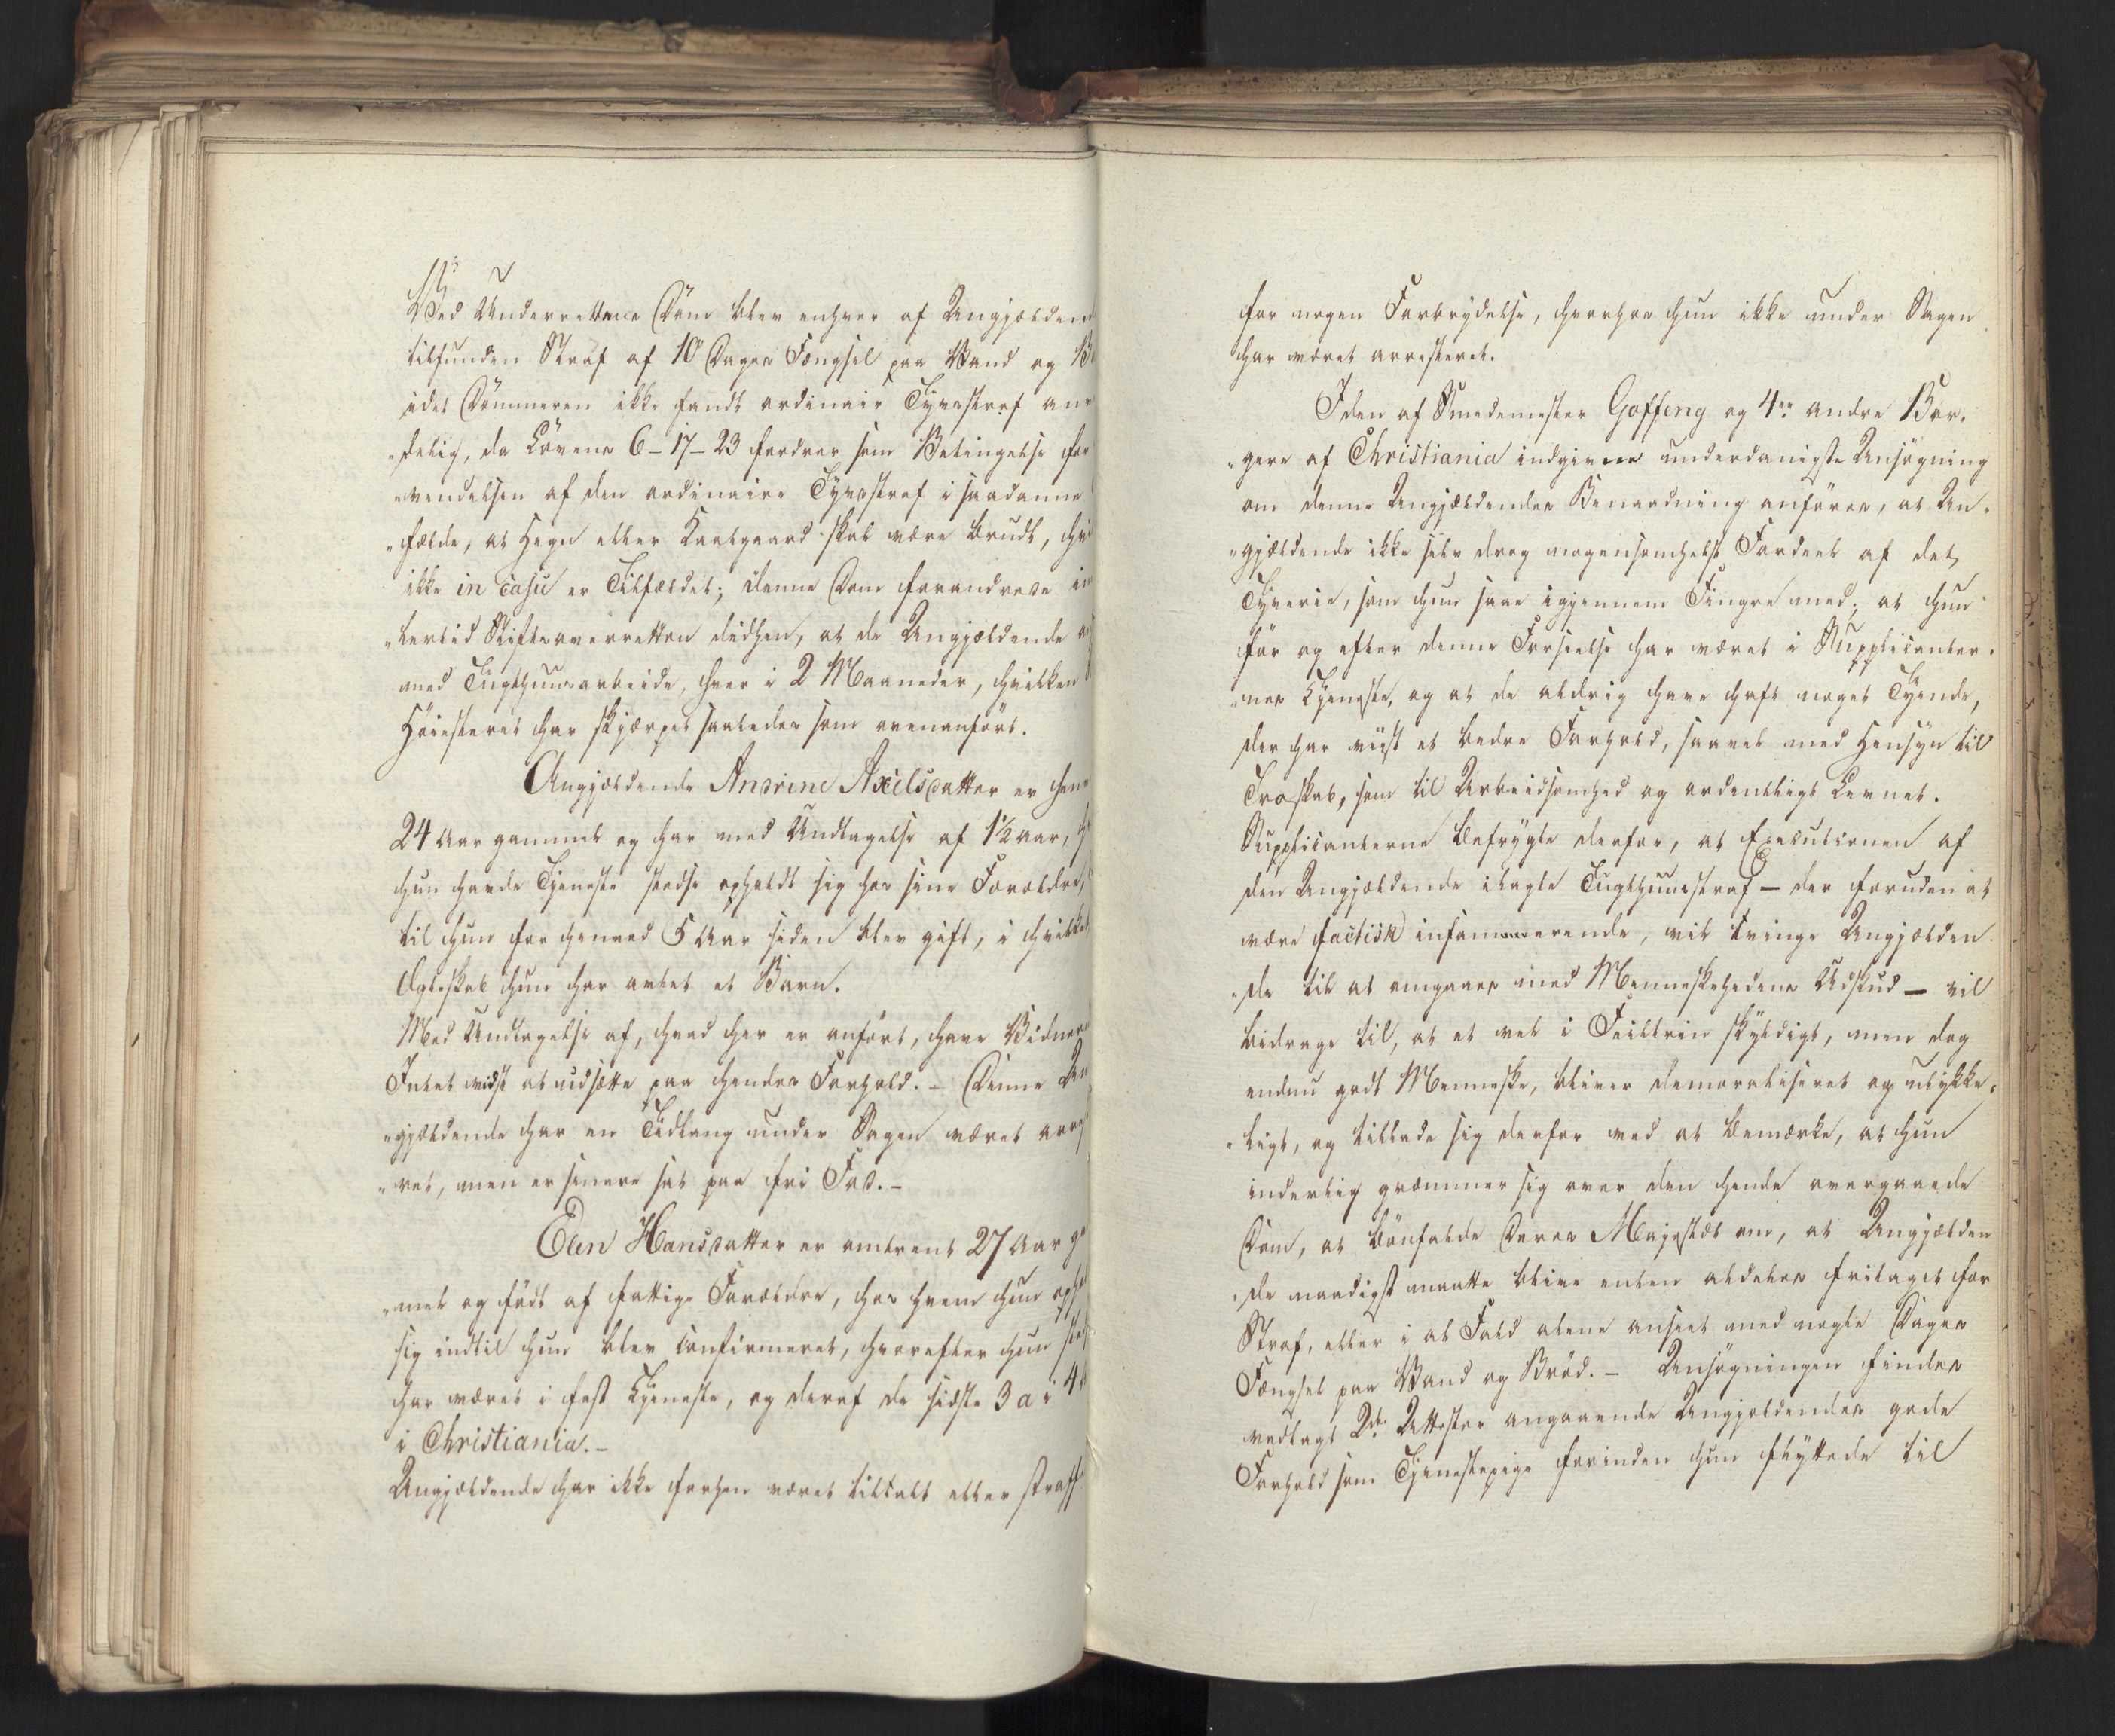 Ved Underrettens Dom blev enhver af Angjældend
tilfunden Straf af 10 Dages Fængsel paa Vand og B
idet Dommeren ikke fandt ordinair Tyvsstraf anv
„delig, da Lovens 6-17-23 fordrer som Betingelse for
„vendelsen af den ordinaire Tyvsstraf i saadanne
„fælde, at Hegn eller Kaalgaard skal være brudt, hvi
ikke in casu er Tilfældet; denne Dom forandrede im
„lertid Stiftsoverretten didhen, at de Angjældende
med Tugthuusarbeide, hver i 2 Maaneder, hvilken
Höiesteret har skjærpet saaledes som ovenanført.
Angjældende Andrine Axelsdatter er hen
24 Aar gammel og har med Undtagelse af 1½ Aar,
hun havde Tjeneste stedse opholdt sig hos sine Forældre,
til hun for henved 5 Aar siden blev gift, i hvilket
Ægteskab hun har avlet et Barn.
Med Undtagelse af, hvad her er anfört, have Vidner
Intet vidst at udsætte paa hendes Forhold. - Denne An
„gjældende har en Tidlang under Sagen været arre
„ret, men er senere sat paa fri Fod. -
Elen Hansdatter er omtrent 27 Aar ga
„mel og född af fattige Forældre, hos hvem hun oph
sig indtil hun blev confirmeret, hvorefter hun sted
har været i fast Tjeneste, og deraf de sidste 3 a 4
i Christiania. -
Angjældende har ikke forhen været tiltalt eller straff
for nogen Forbrydelse, hvorhos hun ikke under Sagen
har været arresteret.
I den af Smedemester Goffeng og 4re andre Bor„
„gere af Christiania indgivne underdanigste Ansögning
om denne Angjældendes Benaadning anføres, at An„
„gjældende ikke selv drog nogensomhelst Fordeel af det
Tyverie, som hun saae igjennem Fingre med; at hun
för og efter denne Forseelse har været i Supplicanter„
„nes Tjeneste, og at de aldrig have haft noget Tyende,
der har viist et bedre Forhold, saavel med Hensyn til
Troskab, som til Arbeidsomhed og ordentligt Levnet.
Supplicanterne befrygte derfor, at Executionen af
den Angjældende ilagte Tugthuusstraf - der foruden at
være factisk infammerende, vil tvinge Angjælden
„de til at omgaaes med Menneskehedens Udskud - vil
bidrage til, at et vel i Feiltrin skyldigt, men dog
endnu godt Menneske, bliver demoraliseret og ulykke„
„ligt, og tillade sig derfor ved at bemærke, at hun
inderlig græmmer sig over den hende overgaaede
Dom, at bönfalde Deres Majestæt om, at Angjælden
„de naadigst maatte blive enten aldeles fritaget for
Straf, eller i al Fald alene anseet med nogle Dages
Fængsel paa Vand og Bröd. - Ansögningen findes
vedlagt 2de Attester angaaende Angjældendes gode
Forhold som Tjenestepige forinden hun flyttede til